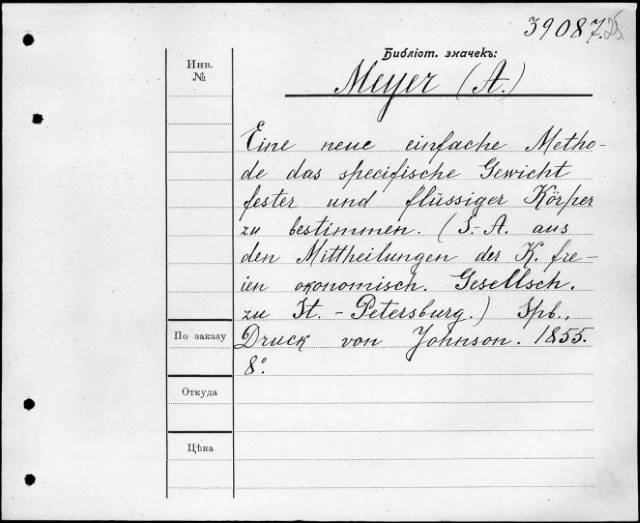 39087.
Библіот. значекъ:
Инв.
№
Meyer (A.)
Eine neue einfache Metho-
de das specifische Gewicht
fester und flüssiger Körper
zu bestimmen. (S.-A. aus
den Mittheilungen der K. fre-
ien okonomisch. Gesellsch.
zu St.-Petersburg.) Spb.,
По заказу
Druck von Johnson. 1855.
8°.
Откуда
Цѣна